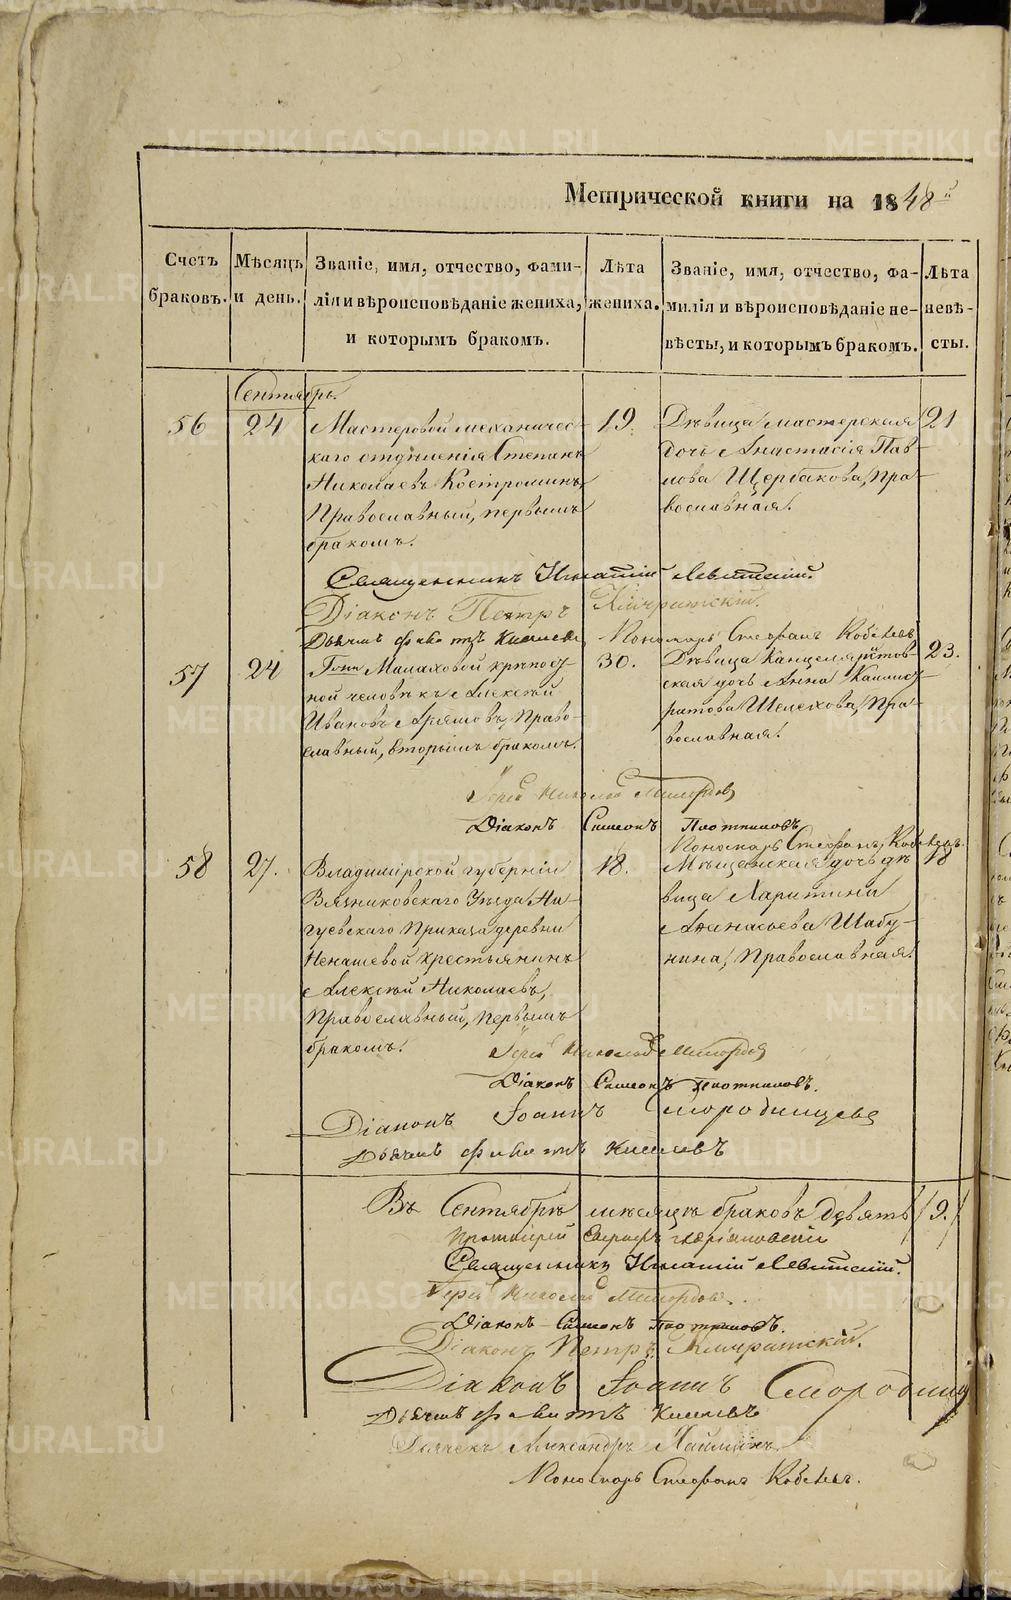 METRIKI.GASO-URAL.RU
Метрической книги на 1848й
Счетъ браковъ.
Мѣсяцъ и день.
Званіе, имя, отчество, фами-
лія и вѣроисповѣданіе жениха,
и которымъ бракомъ.
Лѣта жениха.
Званіе, имя, отчество, фа-
милія и вѣроисповѣданіе не-
вѣсты, и которымъ бракомъ.
Лѣта невѣ-
сты.
Сентябрь.
56
24
Мастеровой механичес-
каго отдѣленія Степанъ
Николаевъ Костроминъ,
Православный, первымъ
бракомъ.
19.
Дѣвица мастерская
дочь Анастасія Пав-
лова Щербакова, Пра-
вославная.
21
Священникъ Игнатій Левитскій.
Діаконъ Петръ
Дьячекъ Киселевъ
Пономарь Стефанъ
57
24
Малаховой крѣпос-
ной человѣкъ Алексѣй
Ивановъ, Право-
славный, вторымъ бракомъ.
30.
Дѣвица Канцеляристов-
ская дочь Анна
Шелехова, Пра-
вославная.
23.
Іерей Николай
Діаконъ Симеонъ Плотниковъ
Пономарь Стефанъ
58
27.
Владимірской губерніи
Вязниковскаго Уѣзда
Приказа деревни
Ненашевой крестьянинъ
Алексѣй Николаевъ,
Православный, первымъ
бракомъ.
18.
Мѣщанская дочь дѣ-
вица
Афанасьева Шабу-
нина, Православная.
18
Іерей Николай
Діаконъ Симеонъ Плотниковъ.
Діаконъ Іоаннъ Смородинцевъ
Дьячекъ Киселевъ
Въ Сентябрѣ мѣсяцѣ браковъ девять /9./
Протоіерей
Священникъ Игнатій Левитскій.
Іерей Николай
Діаконъ Симеонъ Плотниковъ.
Діаконъ Петръ
Діаконъ Іоаннъ
Дьячекъ Киселевъ
Дьячекъ Александръ
Пономарь Стефанъ